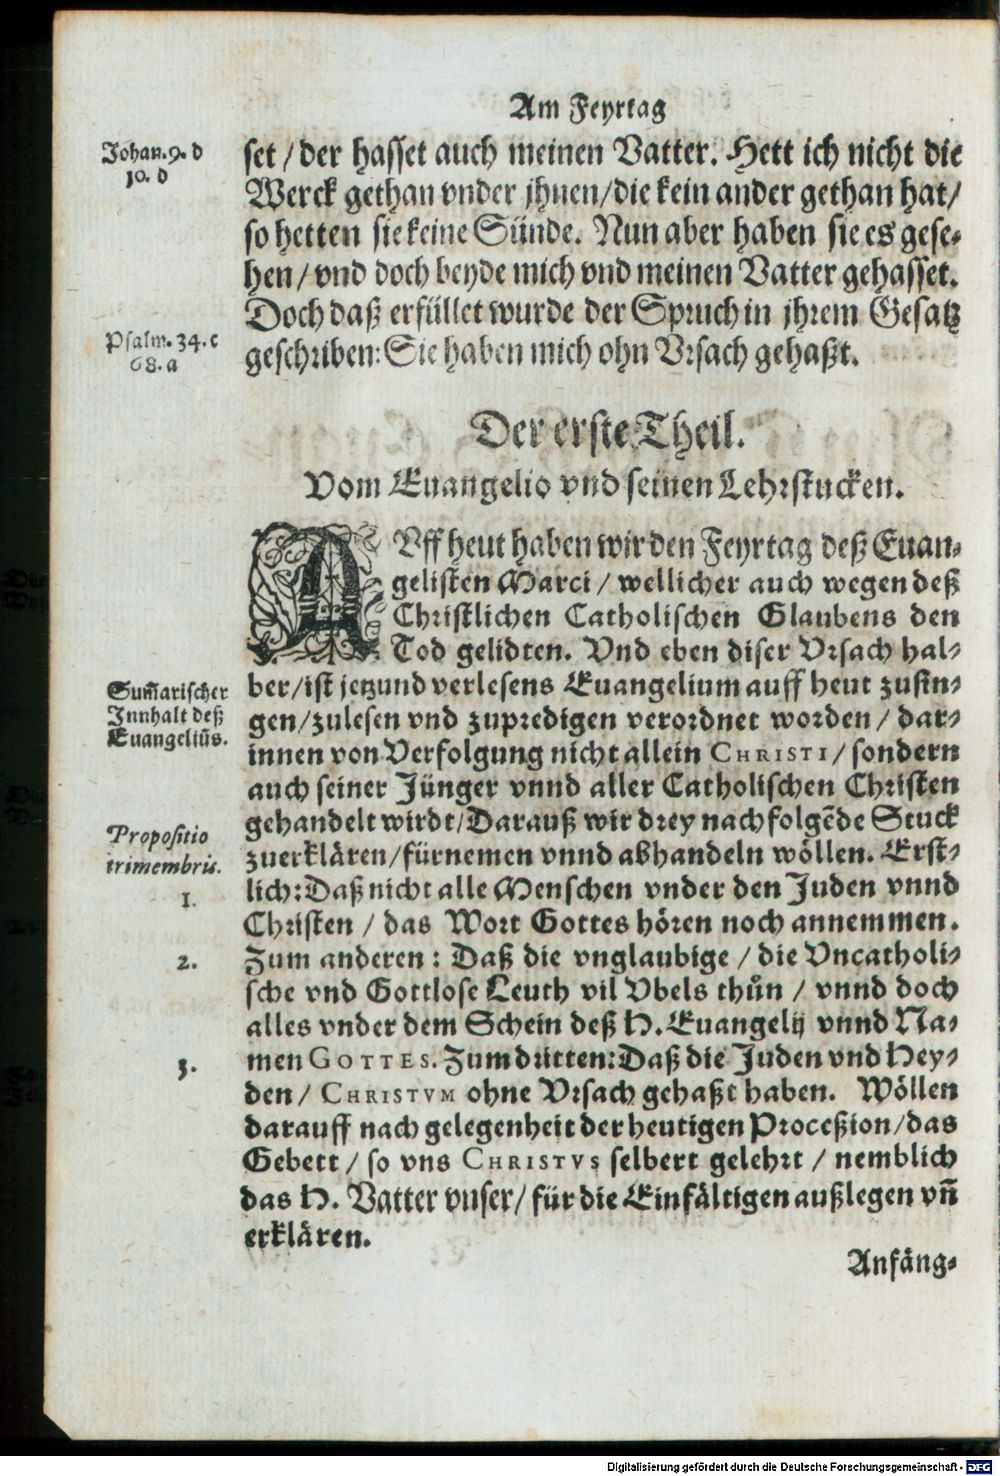 Am Feyrtag
Johan. 9. d
10. d
set / der hasset auch meinen Vatter. Hett ich nicht die
Werck gethan vnder jhnen / die kein ander gethan hat /
so hetten sie keine Sünde. Nun aber haben sie es gese-
hen / vnd doch beyde mich vnd meinen Vatter gehasset.
Doch daß erfüllet wurde der Spruch in jhrem Gesatz
Psalm. 34. c
68. a
geschriben: Sie haben mich ohn Vrsach gehaßt.
Der erste Theil.
Vom Euangelio vnd seinen Lehrstucken.
AVff heut haben wir den Feyrtag deß Euan-
gelisten Marci / wellicher auch wegen deß
Christlichen Catholischen Glaubens den
Tod gelidten. Vnd eben diser Vrsach hal-
Sum̃arischer
Innhalt deß
Euangeliũs.
ber / ist jetzund verlesens Euangelium auff heut zusin-
gen / zulesen vnd zupredigen verordnet worden / dar-
innen von Verfolgung nicht allein CHRISTI / sondern
auch seiner Jünger vnnd aller Catholischen Christen
Propositio
trimembris.
gehandelt wirdt / Darauß wir drey nachfolgẽde Stuck
zuerklären / fürnemen vnnd abhandeln wöllen. Erst-
1.
lich: Daß nicht alle Menschen vnder den Juden vnnd
Christen / das Wort Gottes hören noch annemmen.
2.
Zum anderen: Daß die vnglaubige / die Vncatholi-
sche vnd Gottlose Leuth vil Vbels thůn / vnnd doch
alles vnder dem Schein deß H. Euangelij vnnd Na-
3.
men GOTTES. Zum dritten: Daß die Juden vnd Hey-
den / CHRISTVM ohne Vrsach gehaßt haben. Wöllen
darauff nach gelegenheit der heutigen Proceßion / das
Gebett / so vns CHRISTVS selbert gelehrt / nemblich
das H. Vatter vnser / für die Einfältigen außlegen vñ
erklären.
Anfäng-
Digitalisierung gefördert durch die Deutsche Forschungsgemeinschaft - DFG